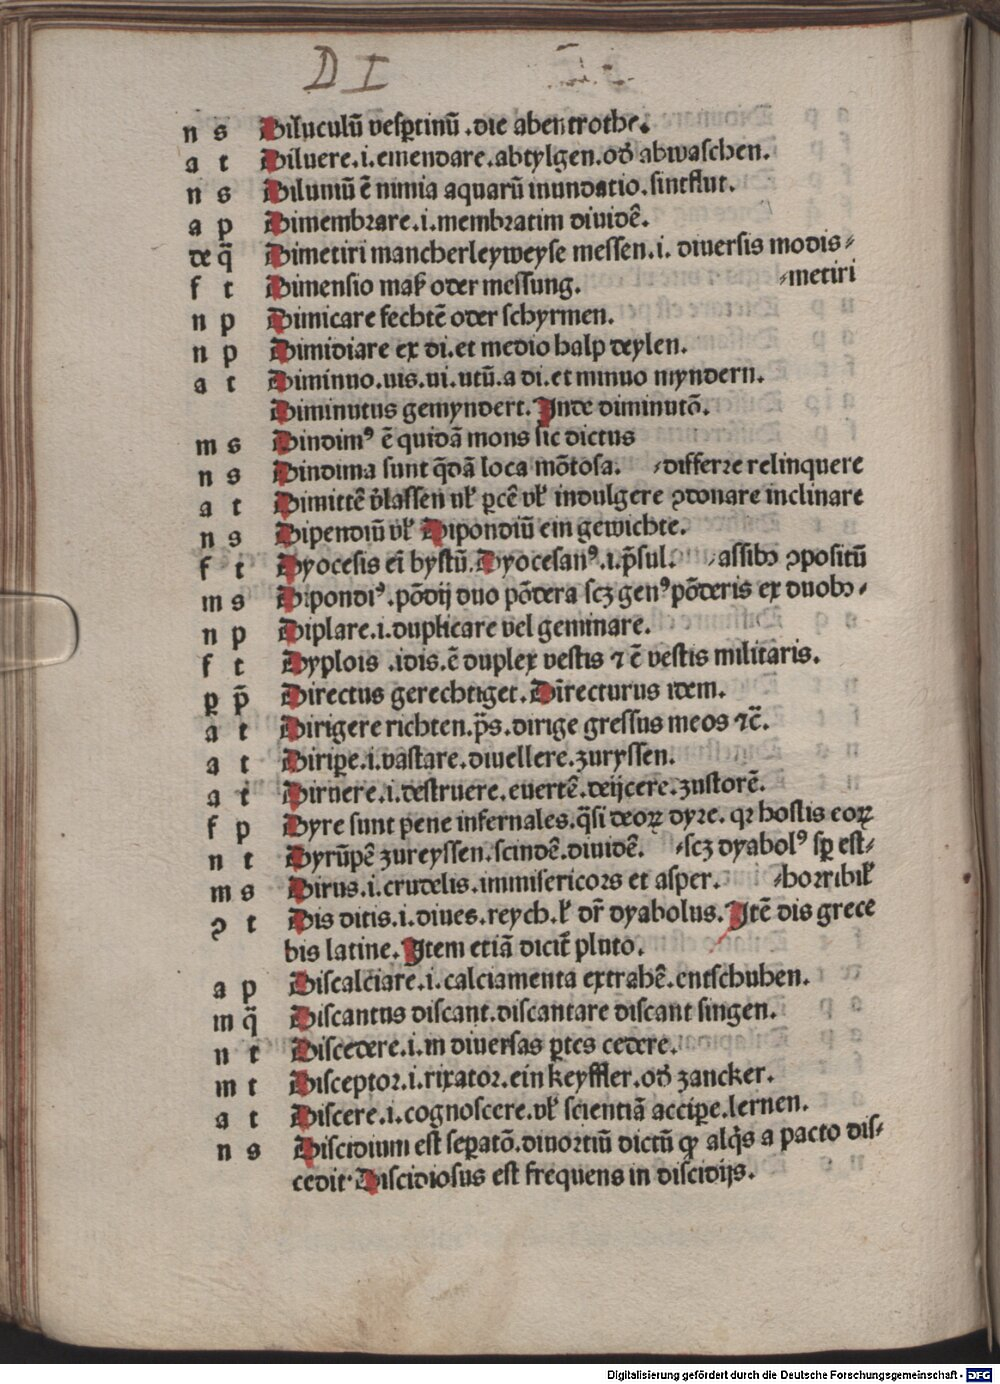 D I
n s Diluculū vesꝑtinū .die abentrothe.
a t Diluere.i.emendare.abtylgen.od̓ abwaschen.
n s Diluuiū ē nimia aquarū inundatio.sintflut.
a p Dimembrare.i.membratim diuidē.
de q̄ Dimetiri mancherleyweyse messen.i. diuersis modis⸗
f t Dimensio maß oder messung. ⸗metiri
n p Dimicare fechtē oder schyrmen.
n p Dimidiare ex di.et medio halp deylen.
a t Diminuo.uis.ui.utū.a di.et minuo myndern.
Diminutus gemyndert. Inde diminutō.
m s Dindimꝰ ē quidā mons sic dictus
n s Dindima sunt q̄dā loca mōtosa. ⸗differre relinquere
a t Dimittē v̓lassen vl̓ ꝑcē vl̓ indulgere ꝯdonare inclinare
n s Dipendiū vl̓ Dipondiū ein gewichte.
f t Dyocesis eī bystū. Dyocesanꝰ.i.p̄sul. ⸗assibꝰ ꝯpositū
m s Dipondiꝰ.pōdij duo pōdera scꝫ genꝰ pōderis ex duobꝰ⸗
n p Diplare.i.duplicare vel geminare.
f t Dyplois .idis.ē duplex vestis ⁊ ē vestis militaris.
p p̄ Directus gerechtiget. Directurus idem.
a t Dirigere richten.p̄s.dirige gressus meos ⁊c̄.
a t Diripe.i.vastare.diuellere.zuryssen.
a t Diruere.i.destruere.euertē.deijcere.zustorē.
f p Dyre sunt pene infernales.q̄si deoꝝ dyre. qꝛ hostis eoꝝ
n t Dyrūpē zureyssen.scindē.diuidē. ⸗scꝫ dyabolꝰ sꝑ est⸗
m s Dirus.i.crudelis.immisericors et asper. ⸗horribil̓
ꝯ t Dis ditis.i.diues.reych.l̓ dr̄ dyabolus. Itē dis grece
bis latine. Item etiā dicit̄ pluto.
a p Discalciare.i.calciamenta extrahē.entschuhen.
m q̄ Discantus discant.discantare discant singen.
n t Discedere.i.in diuersas ꝑtes cedere.
m t Disceptor.i.rixator.ein keyffler.od̓ zancker.
a t Discere.i.cognoscere.vl̓ scientiā accipe.lernen.
n s Discidium est seꝑatō.diuortiū dictū ꝙ alq̄s a pacto dis⸗
cedit. Discidiosus est frequens in discidijs.
Digitalisierung gefördert durch die Deutsche Forschungsgemeinschaft - DFG